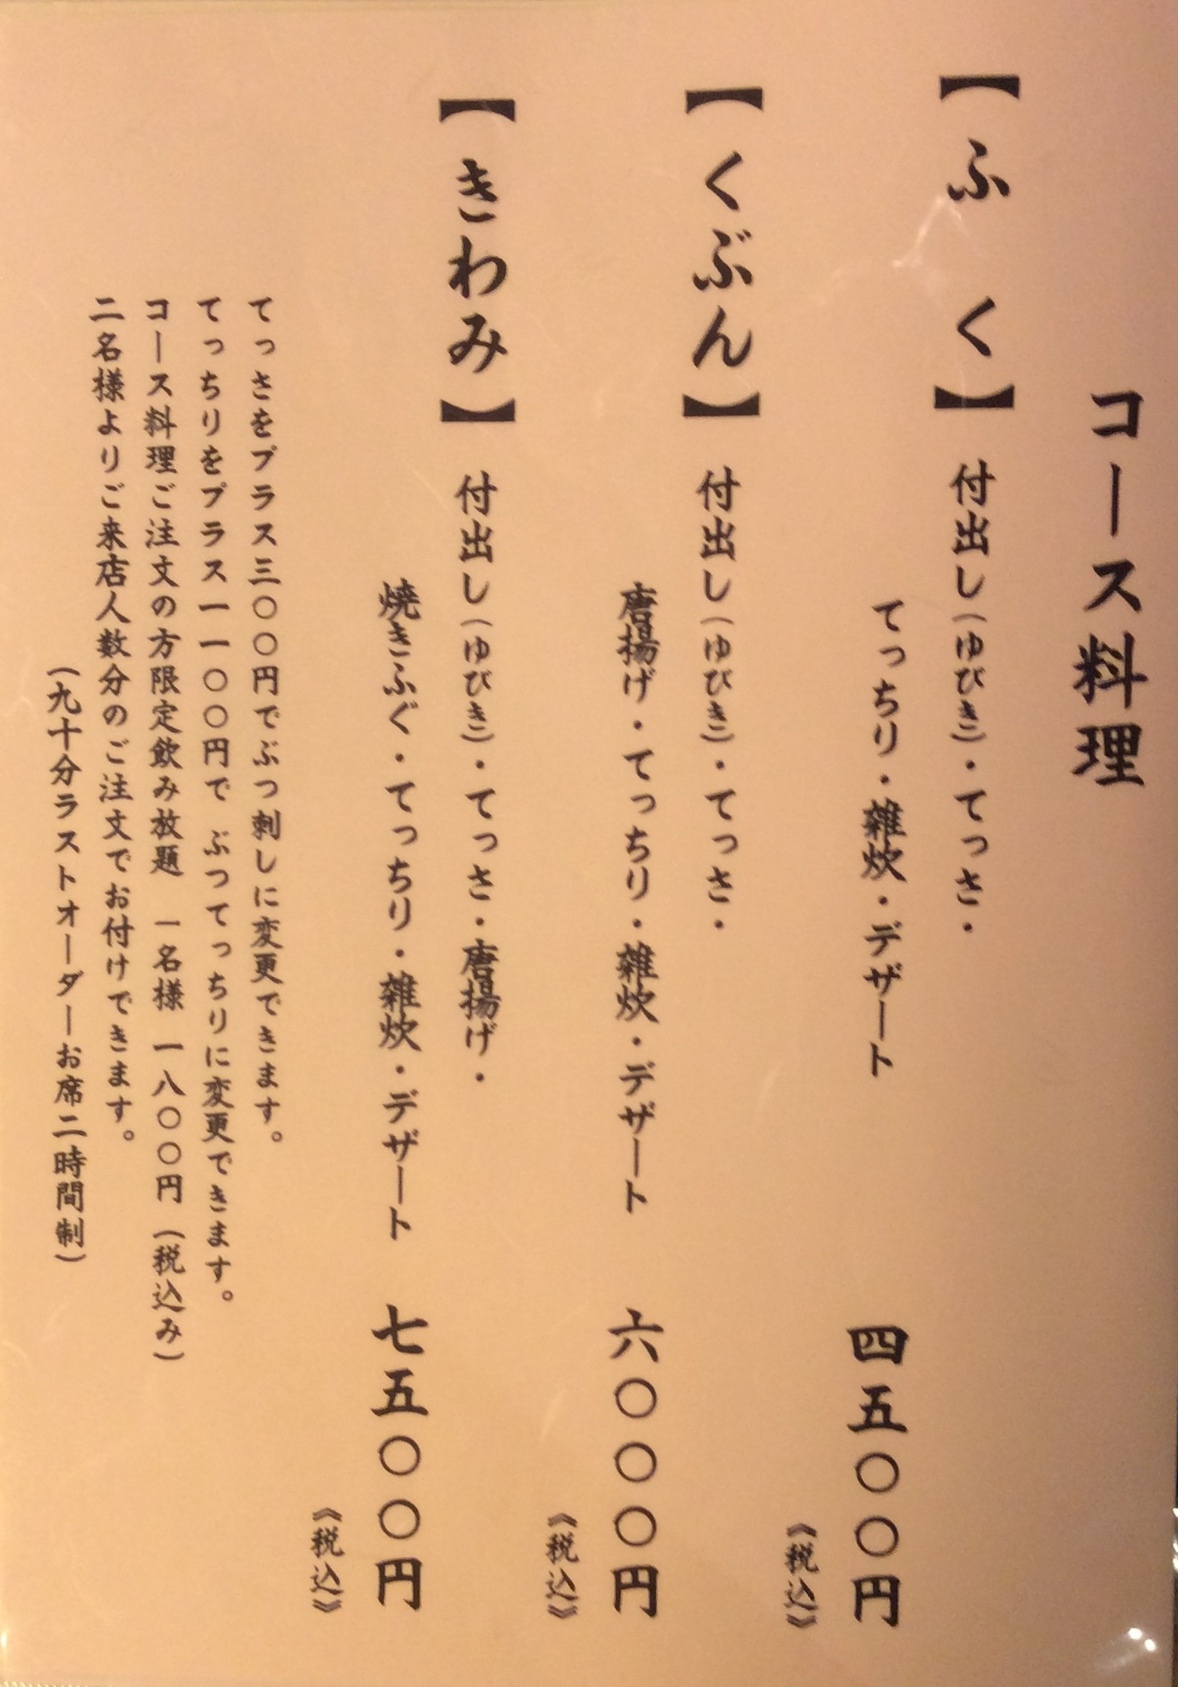 コース料理
【ふ く】付出し（ゆびき）・てっさ・
てっちり・雑炊・デザート 四五〇〇円
《税込》
【くぶん】付出し（ゆびき）・てっさ・
唐揚げ・てっちり・雑炊・デザート 六〇〇〇円
《税込》
【きわみ】付出し（ゆびき）・てっさ・唐揚げ・
焼きふぐ・てっちり・雑炊・デザート 七五〇〇円
《税込》
てっさをプラス三〇〇円でぶつ刺しに変更できます。
てっちりをプラス一一〇〇円で ぶつてっちりに変更できます。
コース料理ご注文の方限定飲み放題 一名様 一八〇〇円（税込み）
二名様よりご来店人数分のご注文でお付けできます。
（九十分ラストオーダーお席二時間制）